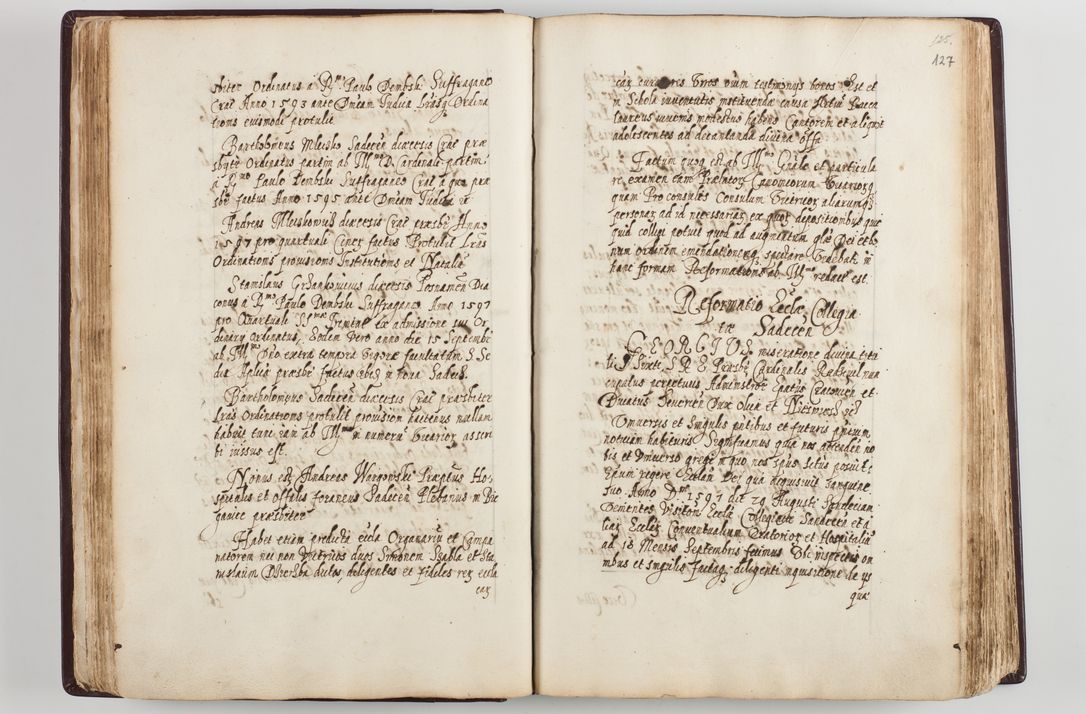 sbiter Ordinatus a R^mo Paulo Dembski Suffraganeo
Crac Anno 1593 ante Dnicam Judica Lrasq Ordina
tionis eiusmodi protulit
Bartholomeus Mleisko Sadecen diœcesis Crac præ
sbyter Ordinatus partim ab Ill^mo D. Cardinale partim
a R^mo Paulo Dembski Suffraganeo Crac a quo præ
sbr factus Anno 1595 ante Dnicam Judica
Andreas Mleiskowius diœcesis Crac præsbr Anno
1597 pro quartuali Ciner factus Protulit Lras
Ordinationis provisionis Institutionis et Natalis
Stanislaus Grzankowius diœcesis Posnanien Dia
conus a R^mo Paulo Dembski Suffraganeo Anno 1597
pro Quartuali SS^mæ Trinitat ex admissione sui Or
dinary Ordinatus, Eodem vero anno die 15 Septembr
ab Ill^mo Dno extra tempora vigore facultatum S Se
dis Aplicæ præsbr factus est in nova Sadecz.
Bartholomeus Sadecen diœcesis Crac præsbiter
Lras Ordinationis protulit provision hactenus nullam
habuit tunc iam ab Ill^mo in numeru Vicarior ascri
bi iussus est.
Nonus est Andreas Wargowski Præptus Ho-
spitalis et Offilis foraneus Sadecen Plebanus in Po
gawice præsbiter
Habet etiam predicta eccla Organariu et Campa
natorem nec non Vitricos duos Simonem Szabla et Sta
nislaum ductos, diligentes et fideles rer eccla
car
125.
127
car curatoris Viros ouium testimonys bonos Est et
in Schola iuuentutis instituendæ causa Artiu Bacca
laureus iuuenis modestus habens Cantorem et aliquot
adolescentes ad decantanda diuina offa
Factum quoq est ab Ill^mo Gnale et particula
re examen tam Prælator Canonicorum Vicariorq
quam Pro consulis Consulum Vitricor aliarumq
personar ad id necessarias ex quor depositionibus quic
quid colligi potuit quod ad augmentum glæ Dei et bo
num ordinem emendationemq, spectare videbat in
hanc formam Reformationis ab Ill^mo redact est.
Reformatio Eccla Collegia
tæ Sadecen
GEORGIUS miseratione diuina titu
li S Sixti S R E Præsbr Cardinalis Radziwil nun
cupatus perpetuus Administrator Epatus Cracouien et
Ducatus Seuerien Dux Olicæ et Nieswiesz &c
Vniuersis et singulis pntibus et futuris pntium
notitiam habituris Significamus quia nos attenden no
bis et Vniuerso gregi in quo nos Spus Sctus posuit
Epum regere Ecclam Dei qua acquisiuit Sanguine
suo Anno Dni 1597 die 29 Augusti Sandecian
Venientes Visiton Ecclæ Collegiatæ Sandecen et a
liar Ecclar Conuentualium Oratorior et Hospitaliu
ad 18 Mensis Septembris fecimus Vbi inspectis om
nibus et singulis factaq diligenti inquisitione de ys
quæ